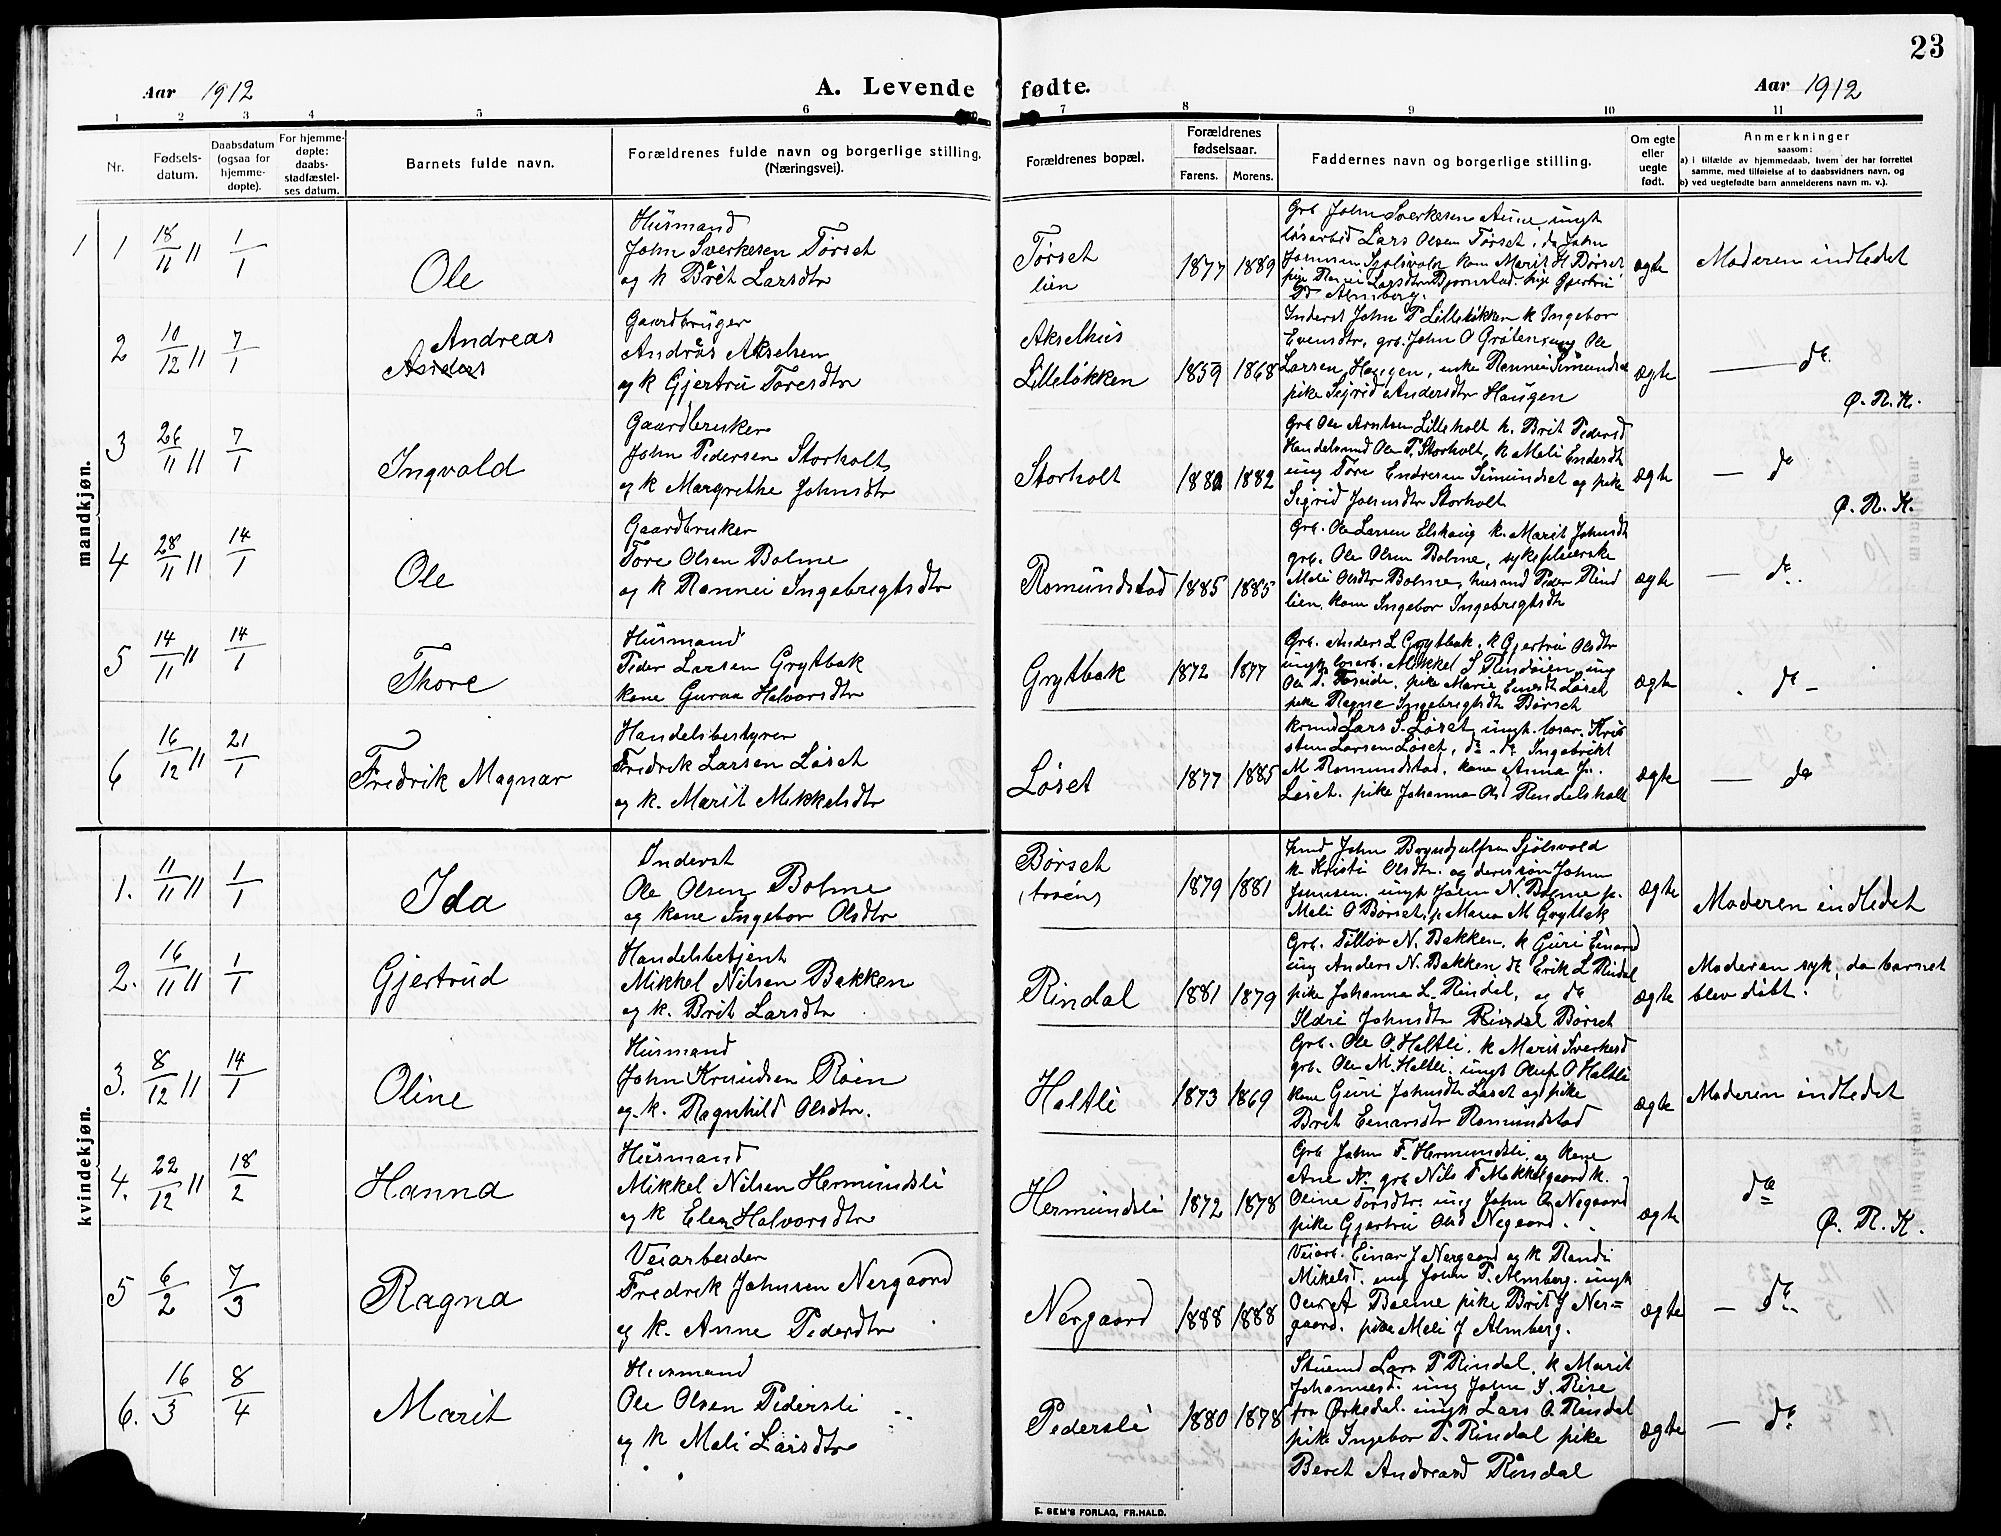 23
Aar 1912
A. Levende fødte.
Aar 1912
1 2 3 4 5 6 7 8 9 10 11
Nr.
Fødsels-
datum.
Daabsdatum
(ogsaa for
hjemme-
døpte).
For hjemme-
døpte:
daabs-
stadfæstel-
ses datum.
Barnets fulde navn.
Forældrenes fulde navn og borgerlige stilling.
(Næringsvei).
Forældrenes bopæl.
Forældrenes
fødselsaar.
Farens. Morens.
Faddernes navn og borgerlige stilling.
Om egte
eller
uegte
født.
Anmerkninger
saasom:
a) i tilfælde av hjemmedaab, hvem der har forrettet
samme, med tilføielse af to daabsvidners navn, og
b) ved uegtefødte barn anmelderens navn m. v.).
mandkjøn.
1 1 18/11 11 1/1
Ole
Husmand
John Sverkesen Tørset
og k Brit Larsdtr
Tørset
lien
1877 1889
Grb John Sverkesen Aune ungk
løsarbid Lars Olsen Tørset, do John
Johnsen Sjølsvold kone Marit H Børset
pike Rannei Larsdtr Bjørnstad. pike Gjertru
Almberg.
ægte
Moderen indledet
2 10/12 11 7/1
Andreas
Anders
Gaardbruger
Andreas Akselsen
og k Gjertru Toresdtr
Akselhus
Lilleløkken
1859 1868
Inderst John P Lilleløkken k Ingebor
Evensdtr, grb. John O Grøten ung Ole
Larsen Haugen, enke Rannei Simundset
pike Sigrid Andersdtr Haugen
ægte
— do
Ø. R. K.
3 26/11 11 7/1
Ingvald
Gaardbruker
John Pedersen Storholt
og k Margrethe Johnsdtr
Storholt
1882
Grb Ole Arntsen Lilleholt k. Brit Pedersd
Handelsmd Ole P. Storholt, k Meli Endersdt
ung Tore Endresen Simundset og pike
Sigrid Johnsdtr Storholt
ægte
— do
Ø. R. K.
4 28/11 11 14/1
Ole
Gaardbruker
Tore Olsen Bolme
og k Rannei Ingebrigtsdtr
Romundstad
1885 1885
Grb. Ole Larsen Elshaug k. Marit Johnsdt
grb. Ole Olsen Bolme, sykepleierske
Meli Olsdtr Bolme, husmd Peder Rind
lien. kone Ingebor Ingebrigtsdt
ægte
— do.
5 14/11 11 14/1
Thore
Husmand
Peder Larsen Grytbak
kone Guraa Halvorsdtr
Grytbak
1872 1877
Grb. Anders L Grytbak, k Gjertru Olsdtr
ungk løsarb. Mikkel S Rendøien, ung
Ole P. pike Marie Løset
pike Ragne Ingebrigtsdt Børset
ægte
do —
6 16/12 11 21/1
Fredrik Magnar
Handelsbestyrer
Fredrik Larsen Løset
og k. Marit Mikkelsdtr
Løset
1877 1885
Lars S. Løset, ungk. løsar. Kris
sten Larsen Løset, do. do Ingebrikt
M Romundstad, kone Anna J.
Løset. pike Johanna Olsd Rendalsholt
ægte
— do
kvindekjøn.
1. 11/11 11 1/1
Ida
Inderst
Ole Olsen Bolme
og kone Ingebor Olsdtr
Børset
trøen
1879 1881
John Sjølsvold
k Kristi Olsdtr. og deres søn John
Johnsen. ungk John N. Bolme p.
Meli O Børset, p Maria M Grytbak
ægte
Moderen indledet
2. 16/11 11 1/1
Gjertrud
Handelsbetjent
Mikkel Nilsen Bakken
og k. Brit Larsdtr
Rindal
1881 1879
Grb. Tølløv N. Bakken, k Guri Einarsd
ung Anders N. Bakken do Erik L Rindal
pike Johanna L. Rindal, og do
Ildri Johnsdtr Rindal Børset
ægte
Moderen syk, da barnet
blev døbt.
3. 8/12 11 14/1
Oline
Husmand
John Knudsen Røen
og k. Ragnhild Olsdtr.
Haltli
1873 1869
Grb. Ole O. Haltli. k Marit Sverkesd
grb. Ole M. Haltli, ungk Oluf O Haltli
kone Guri Johnsdtr Løset og pike
Brit Einarsdtr Romundstad
ægte
Moderen indledet
4. 22/12 11 18/2
Hanna
Husmand
Mikkel Nilsen Hermundsli
og k Elen Halvorsdtr
Hermundsli
1872 1878
Grb John F. Hermundsli, og kone
Ane N. grb Nils F Mekkelgaard k.
Oline Torsdtr. ung John O. Negaard
pike Gjertru Olsd Negaard.
ægte
do
Ø. R. K.
5 6/2 7/3
Ragna
Veiarbeider
Fredrik Johnsen Nergaard
og k. Anne Pedersdtr
Nergaard
1888 1888
Veiarb. Einar J Nergaard og k Randi
Mikelsd. ung John P. Almberg. ungk
Bolme pike Brit J Ner=
gaard. pike Meli J Almberg.
ægte
— do
6. 16/3 8/4
Marit
Husmand
Ole Olsen Pedersli
og k Meli Larsdtr
Pedersli
1880 1878
Stuemd Lars P Rindal, k Marit
Johannesd. ung John J. Rise
fra Ørkedal. ungk Lars O. Rindal
pike Ingebor P. Rindal pike
Beret Andreasd Rindal
ægte
— do
E. SEM'S FORLAG, FR.HALD.